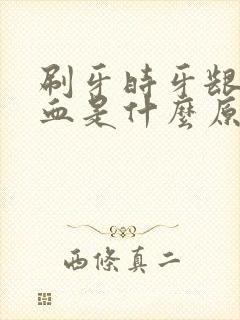 刷牙時牙龈
血是什麼原
西條真二